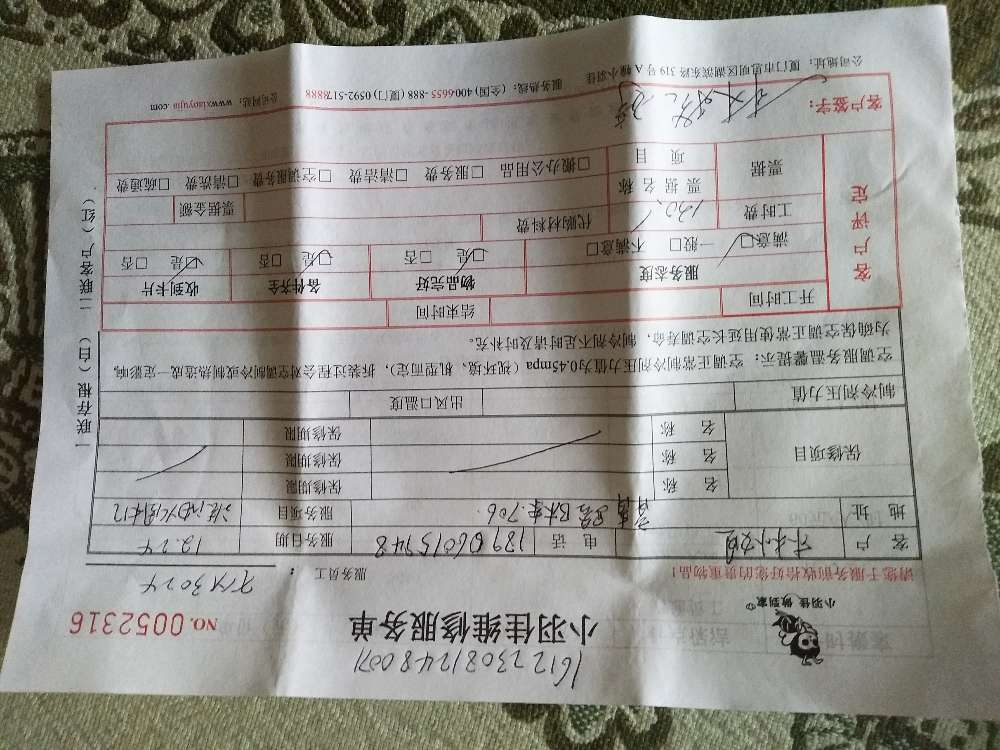 1612230812480071
小羽佳 做到家
小羽佳维修服务单
NO. 0052316
请您于服务前收拾好您的贵重物品！
服务员工： XM3024
客户
电话 13906015948 服务日期 12.24
地址 706 服务项目
保修项目 名称 保修期限
名称 保修期限
名称 保修期限
制冷剂压力值 出风口温度
空调服务温馨提示：空调正常制冷剂压力值为0.45mpa（视环境、机型而定），拆装过程会对空调制冷或制热造成一定影响，
为确保空调正常使用延长空调寿命，制冷剂不足时请及时补充。
客户评定
开工时间 结束时间
服务态度 物品完好 备件齐全 收到卡片
满意□ 一般□ 不满意□ □是 □否 □是 □否 □是 □否
工时费 130 代购材料费
票据 票据名称 票据金额
项目 □搬办公用品 □服务费 □清洁费 □空调服务费 □清洗费 □疏通费
客户签字：
公司地址：厦门市思明区湖滨东路319号A幢小羽佳 服务热线：(全国)400-6655-888 (厦门)0592-5178888 公司网站：www.xiaoyujia.com
一联存根（白） 二联客户（红）